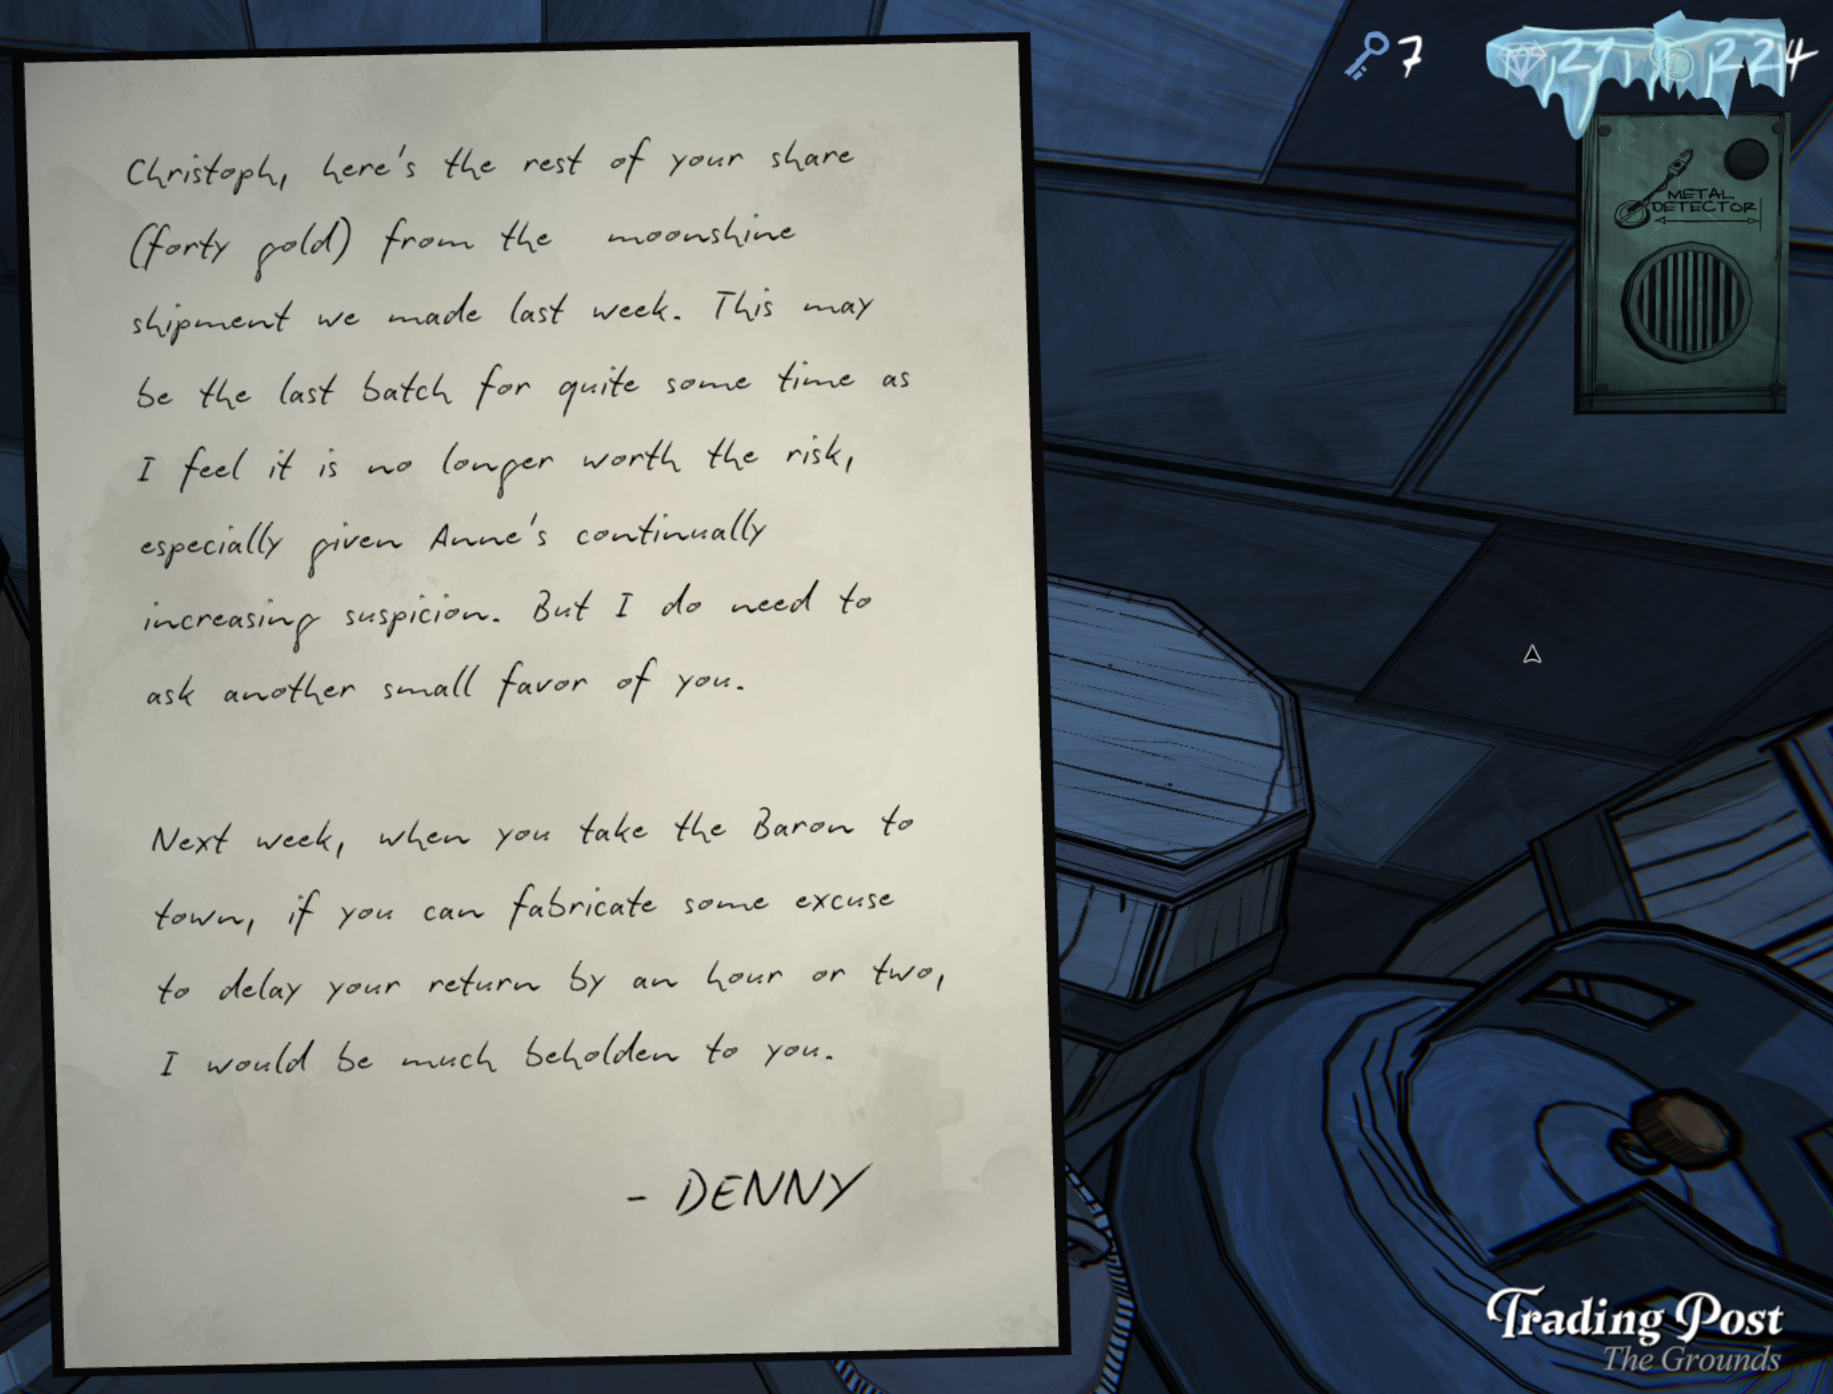 Christoph, here's the rest of your share
(forty gold) from the moonshine
shipment we made last week. This may
be the last batch for quite some time as
I feel it is no longer worth the risk,
especially given Anne's continually
increasing suspicion. But I do need to
ask another small favor of you.
Next week, when you take the Baron to
town, if you can fabricate some excuse
to delay your return by an hour or two,
I would be much beholden to you.
- DENNY
7
224
METAL
DETECTOR
Trading Post
The Grounds